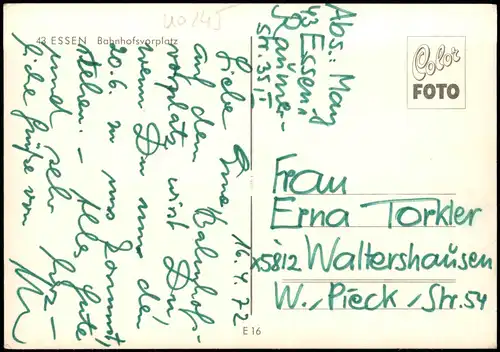 40 145
43 ESSEN Bahnhofsvorplatz
Abs.: May
43 Essen 1
str. 35 II
Color
FOTO
16.4.72
Liebe Erna,
auf dem Bahnhofs-
vorplatz wirst Du,
wenn Du nun den
20.6. zu uns kommst,
stehen. – Alles Gute
und sehr
liebe Grüße von
Frau
Erna Torkler
x5812 Waltershausen
W.-Pieck-Str. 54
E 16